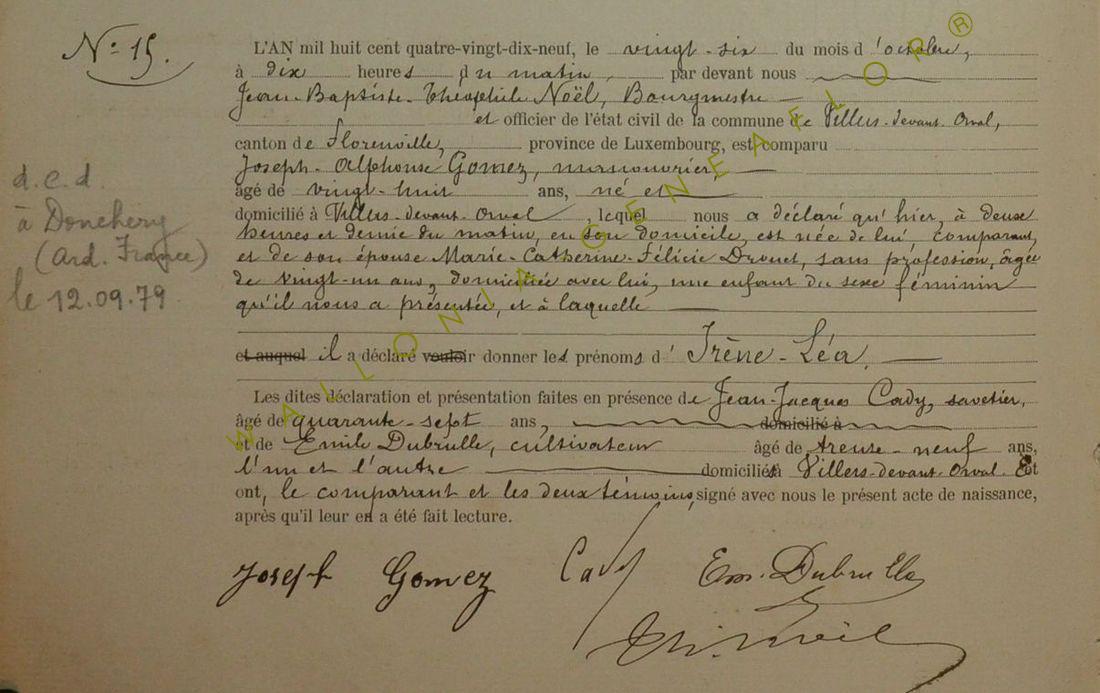 N° 15.
L'AN mil huit cent quatre-vingt-dix-neuf, le vingt-six du mois d'octobre,
à dix heures du matin, par devant nous
Jean-Baptiste-Théophile Noël, Bourgmestre
et officier de l'état civil de la commune de Villers-devant-Orval,
canton de Florenville, province de Luxembourg, est comparu
Joseph-Alphonse Gomez, manouvrier,
âgé de vingt-huit ans, né et
domicilié à Villers-devant-Orval, lequel nous a déclaré qu'hier, à deux
heures et demie du matin, en son domicile, est née de lui, comparant,
et de son épouse Marie-Catherine-Félicie Drouet, sans profession, âgée
de vingt-un ans, domiciliée avec lui, une enfant du sexe féminin
qu'il nous a présentée, et à laquelle
et auquel il a déclaré vouloir donner les prénoms d'Irène-Léa,
Les dites déclaration et présentation faites en présence de Jean-Jacques Cady, savetier,
âgé de quarante-sept ans, domicilié à
et de Emile Dubrulle, cultivateur âgé de trente-neuf ans,
l'un et l'autre domiciliés à Villers-devant-Orval. Et
ont, le comparant et les deux témoins, signé avec nous le présent acte de naissance,
après qu'il leur en a été fait lecture.
Joseph Gomez Cady Em. Dubrulle
Th. Noël
d.c.d.
à Donchery
(Ard. France)
le 12.09.79
WALLONIA © GENEAFLOR®